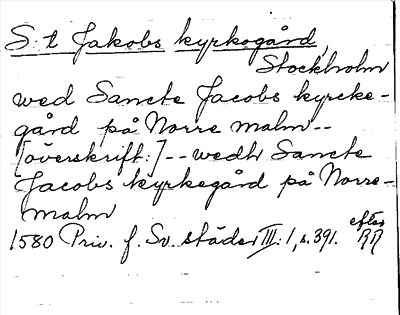 S:t Jakobs kyrkogård,
Stockholm
wed Sancte Jacobs kyrcke-
gård på Norre malm --
[överskrift:] -- wedh Sancte
Jacobs kyrkegård på Norre-
malm
1580 Priv. f. Sv. städer III: 1, s. 391. efter
RR